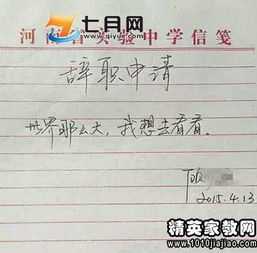 七月网
河南省实验中学信笺
辞职申请
世界那么大，我想去看看。
2015.4.13
精英家教网
www.1010jiajiao.com